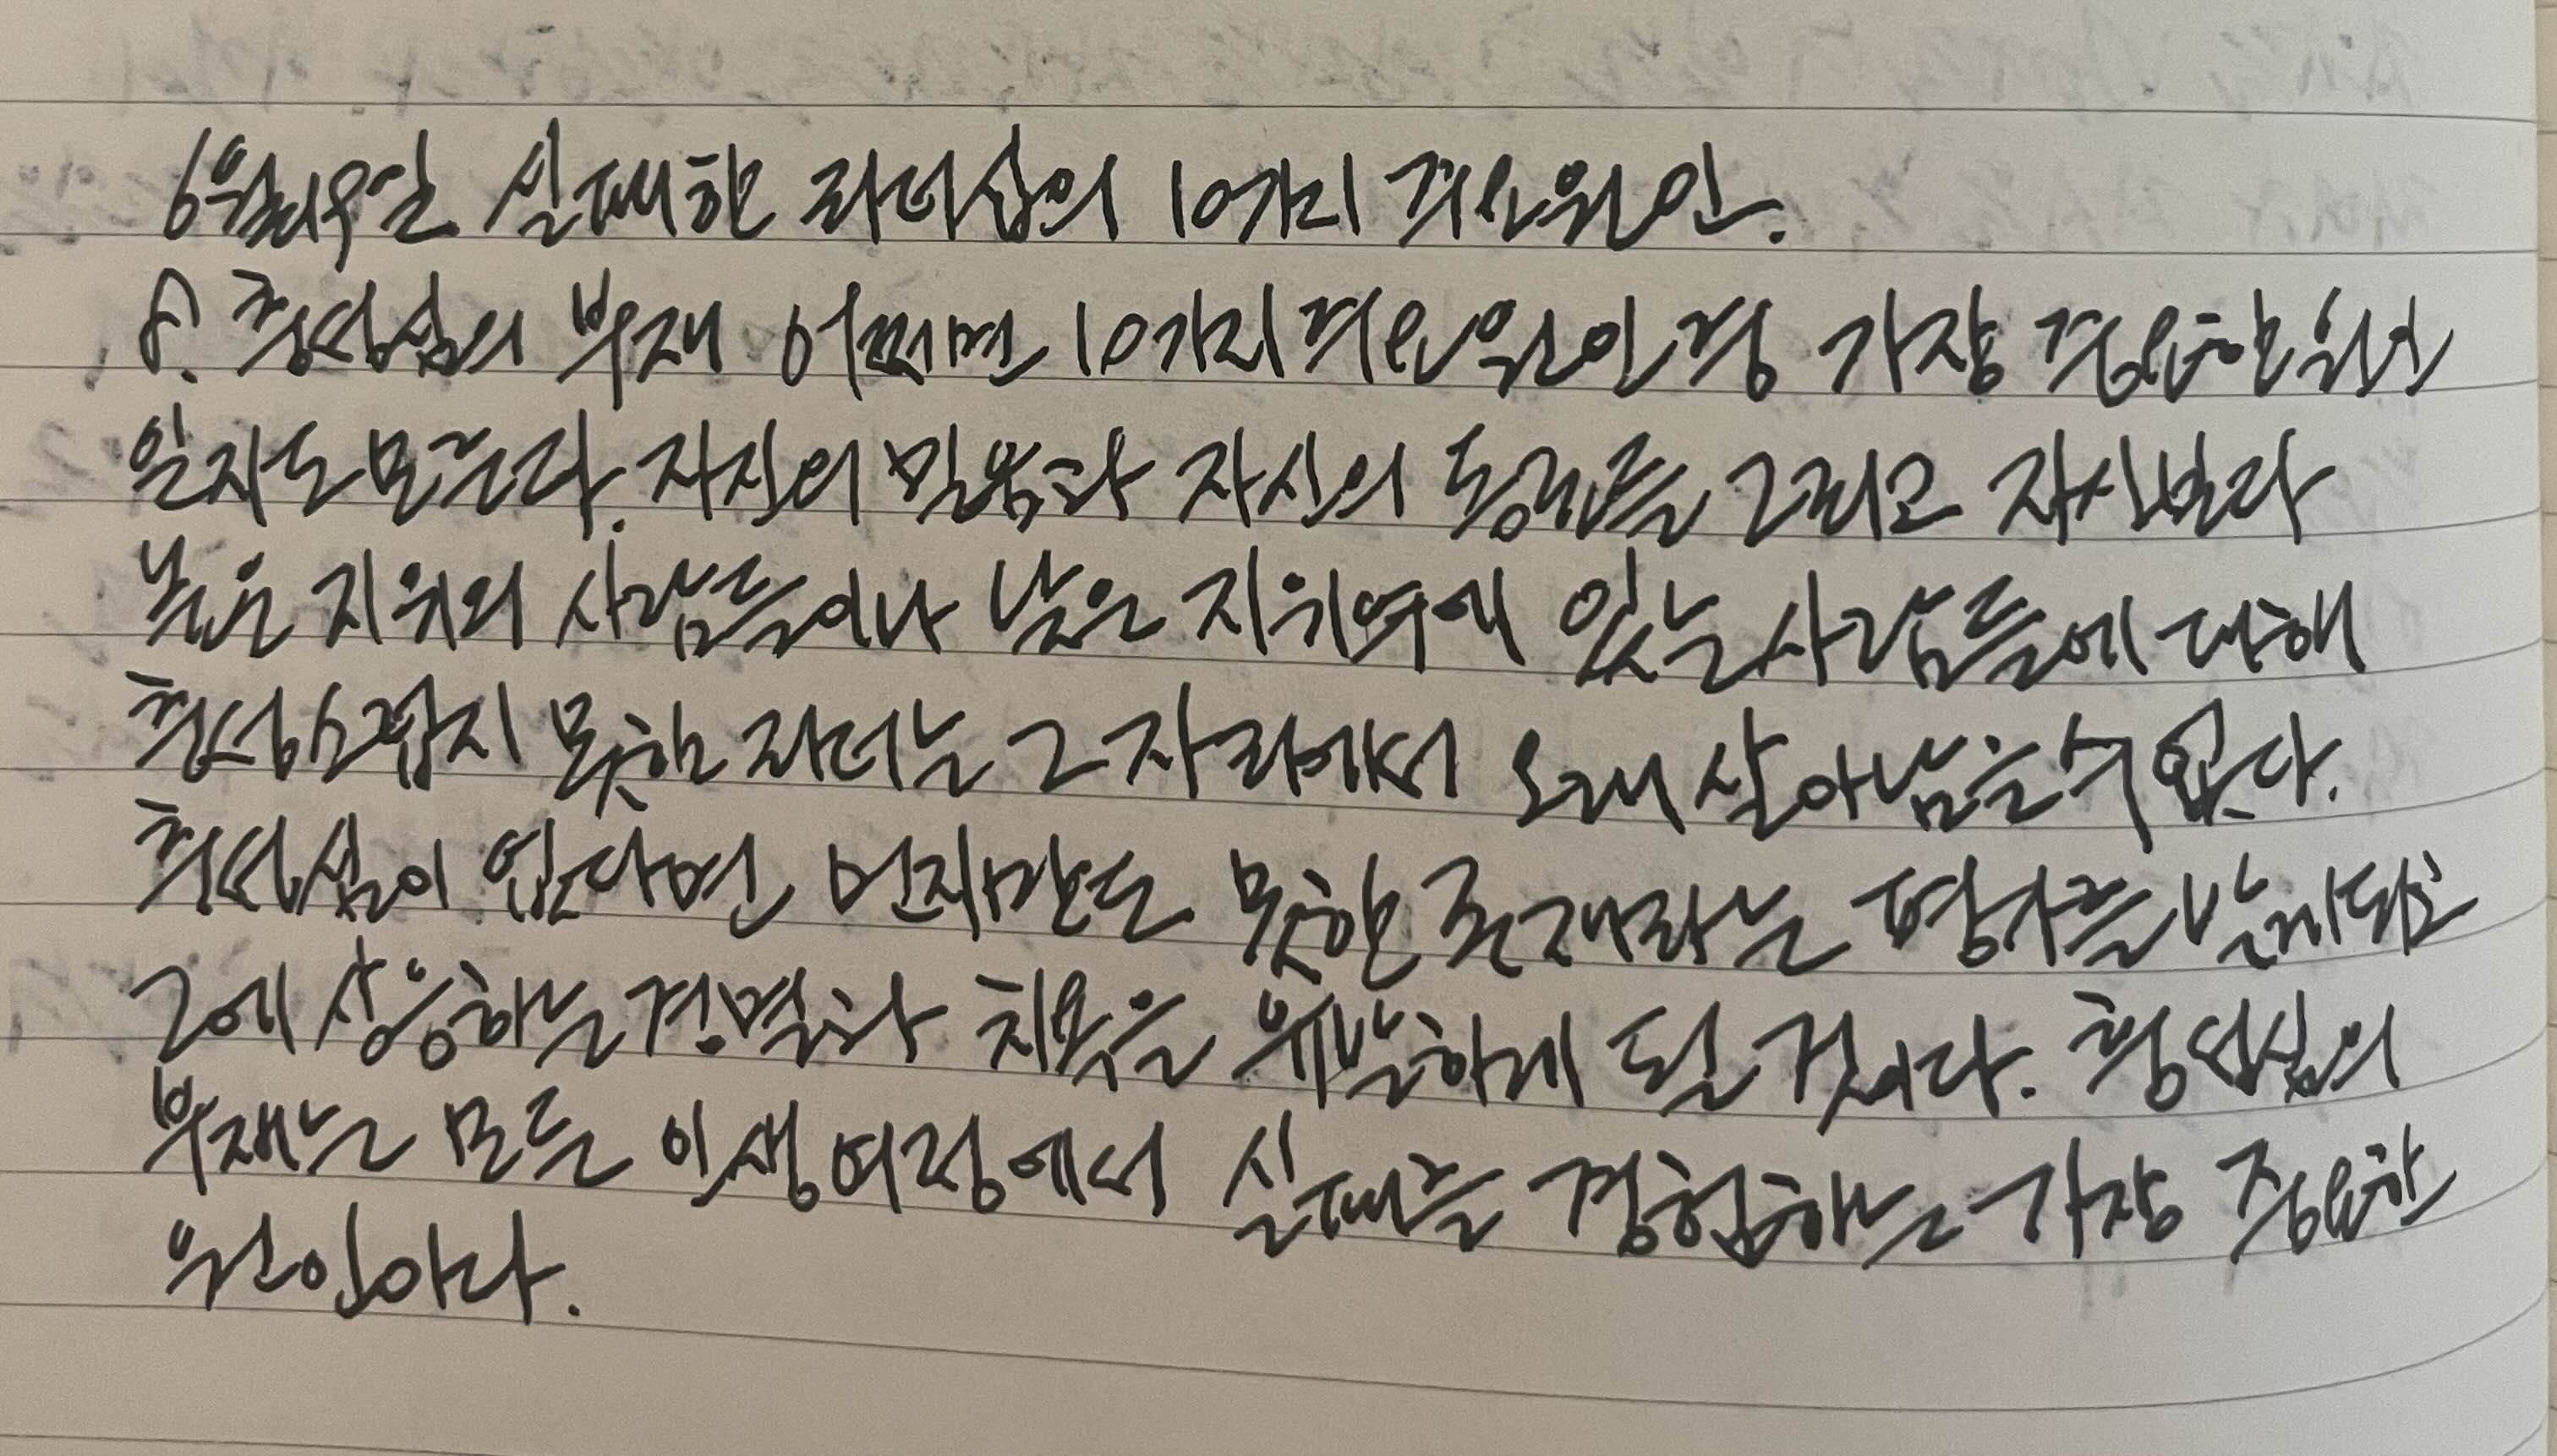 6월29일 실패한 리더십의 10가지 주요원인.
8. 충성심의 부재 어쩌면 10가지 주요 원인 중 가장 중요한 원인
일지도 모른다. 자신의 믿음과 자신의 동료들 그리고 자신보다
높은 지위의 사람들이나 낮은 지위에 있는 사람들에 대해
충성스럽지 못한 리더는 그 자리에서 오래 살아남을 수 없다.
충성심이 없다면 먼지만도 못한 존재라는 평가를 받게되고
그에 상응하는 경멸과 치욕을 유발하게 될 것이다. 충성심의
부재는 모든 인생 여정에서 실패를 경험하는 가장 중요한
원인이다.